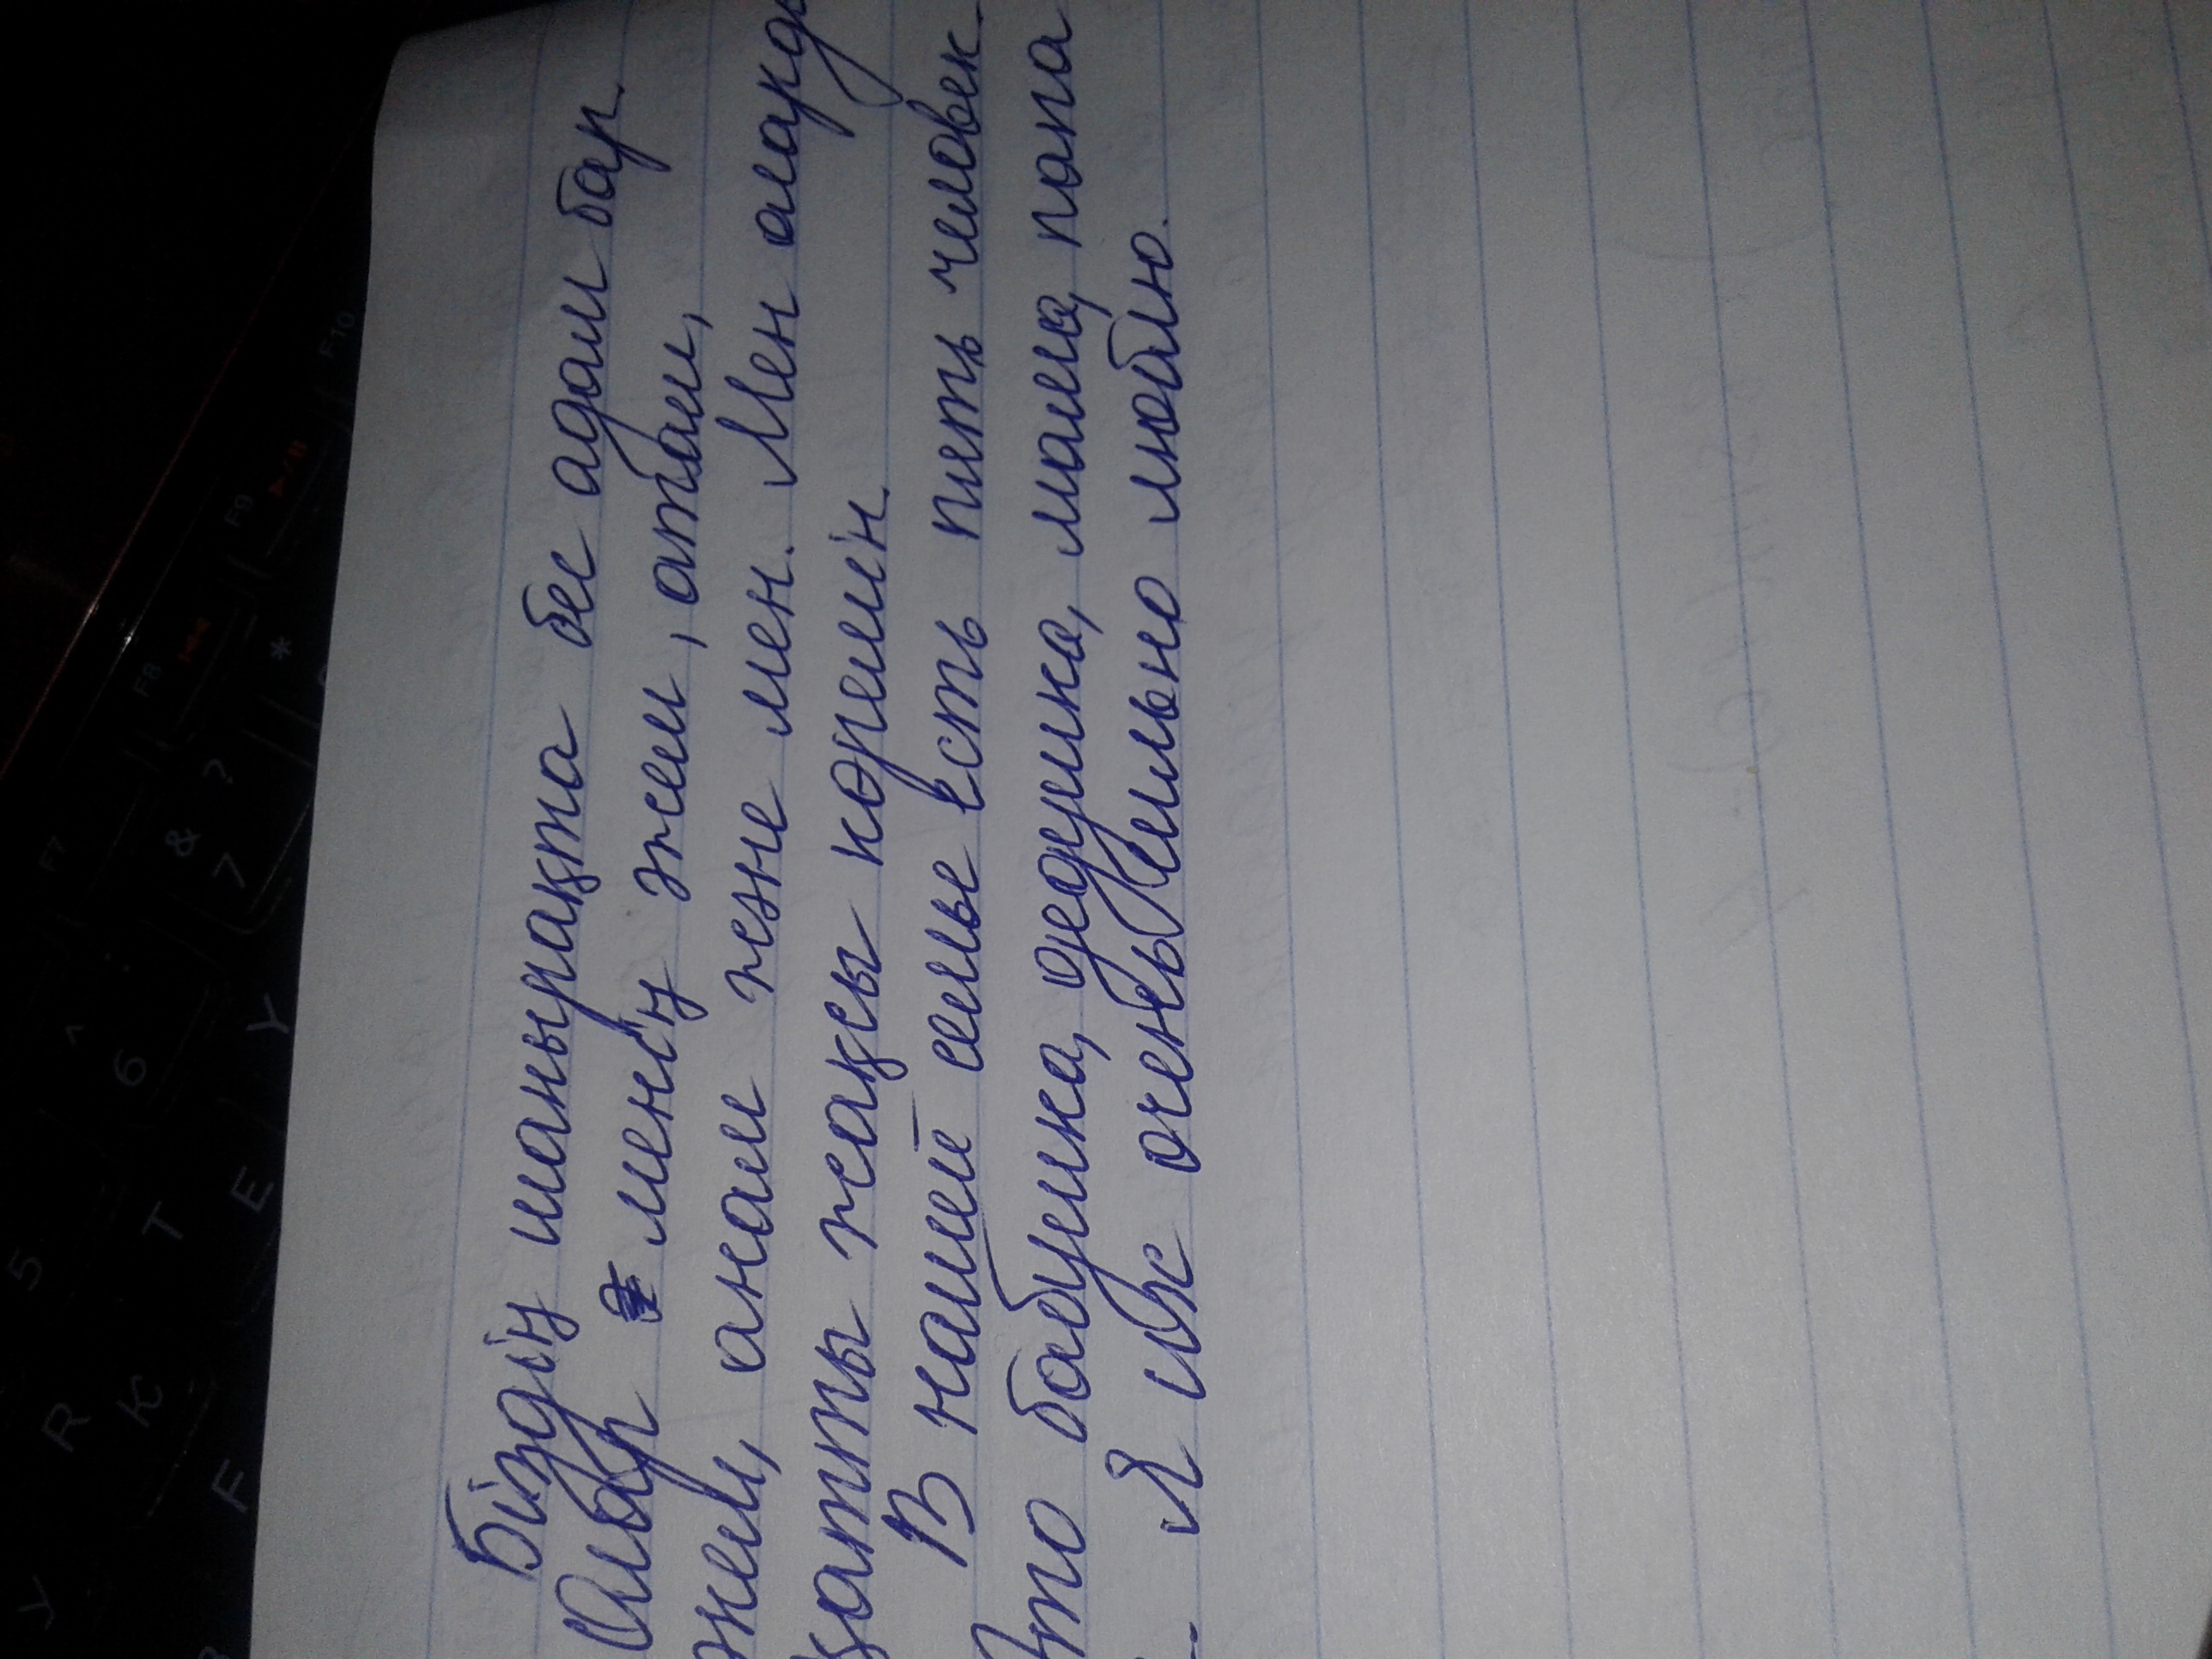 Біздің шаңырақта бес адам бар.
Олар менің әжем, атам,
әкем, анам және мен. Мен оларды
қатты жақсы көремін.
В нашей семье есть пять человек.
Это бабушка, дедушка, мама, папа
Я их очень сильно люблю.
F7
F8
F9
F10
&
7
?
*
^
6
5
T
E
Y
R
K
F
У